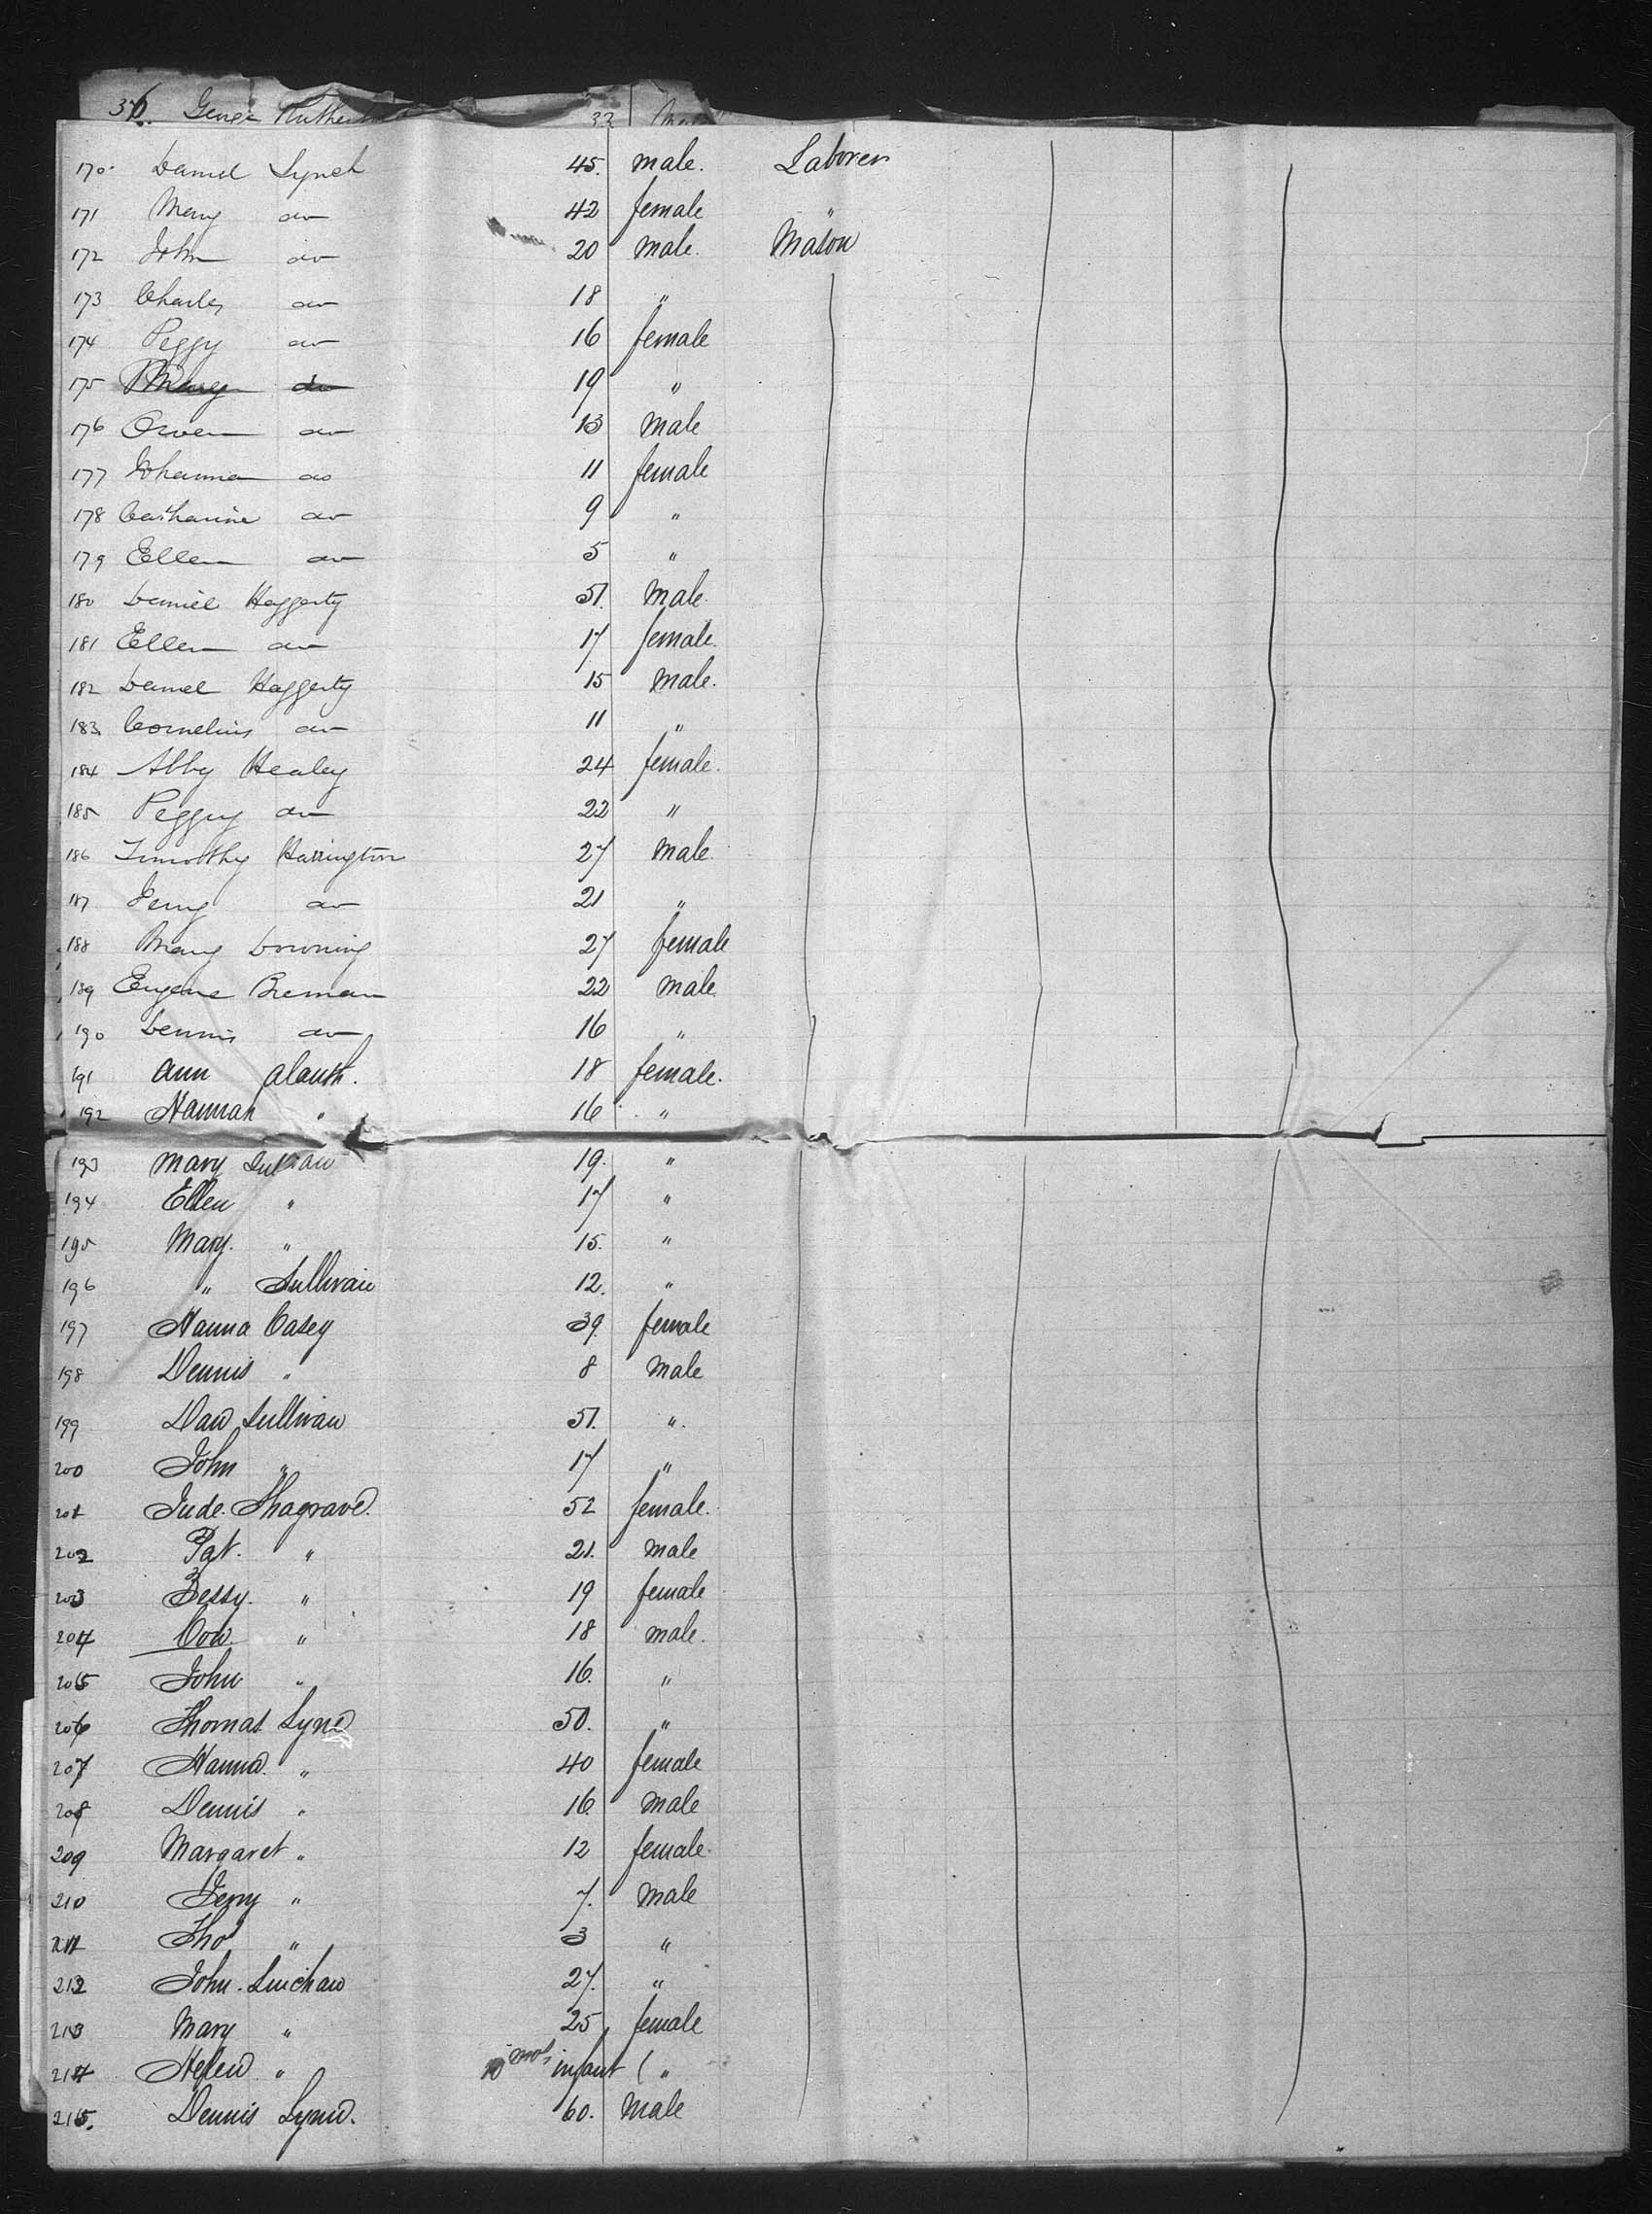 36. George
170. Daniel Lynch 45. male. Laborer
171 Mary do 42 female "
172 John do 20 male. Mason
173 Charles do 18 "
174 Peggy do 16 female
175 Mary do 19 "
176 Owen do 13 male
177 Johanna do 11 female
178 Catharine do 9 "
179 Ellen do 5 "
180 Daniel Haggerty 51. male.
181 Ellen do 17 female.
182 Daniel Haggerty 15 male.
183 Cornelius do 11 "
184 Abby Healey 24 female.
185 Peggy do 22 "
186 Timothy Harrington 27 male
187 Jerry do 21 "
188 Mary Downing 27 female
189 Eugene 22 male
190 Dennis do 16 "
191 Ann 18 female.
192 Hannah " 16 "
193 Mary 19. "
194 Ellen " 17 "
195 Mary. " 15. "
196 " Sullivan 12. "
197 Hanna Casey 39. female
198 Dennis " 8 male
199 Dan Sullivan 51. ".
200 John " 17 "
201 Jude. 52 female.
202 Pat. " 21. male
203 Bessy. " 19 female
204 Con " 18 male.
205 John " 16. "
206 Thomas 50. "
207 Hanna. " 40 female
208 Dennis " 16. male
209 Margaret " 12 female.
210 Jerry " 7. male
211 Tho " 3 "
212 John. 27. "
213 Mary " 25 female
214 Helen " 10 mos infant ( "
215. Dennis 60. male